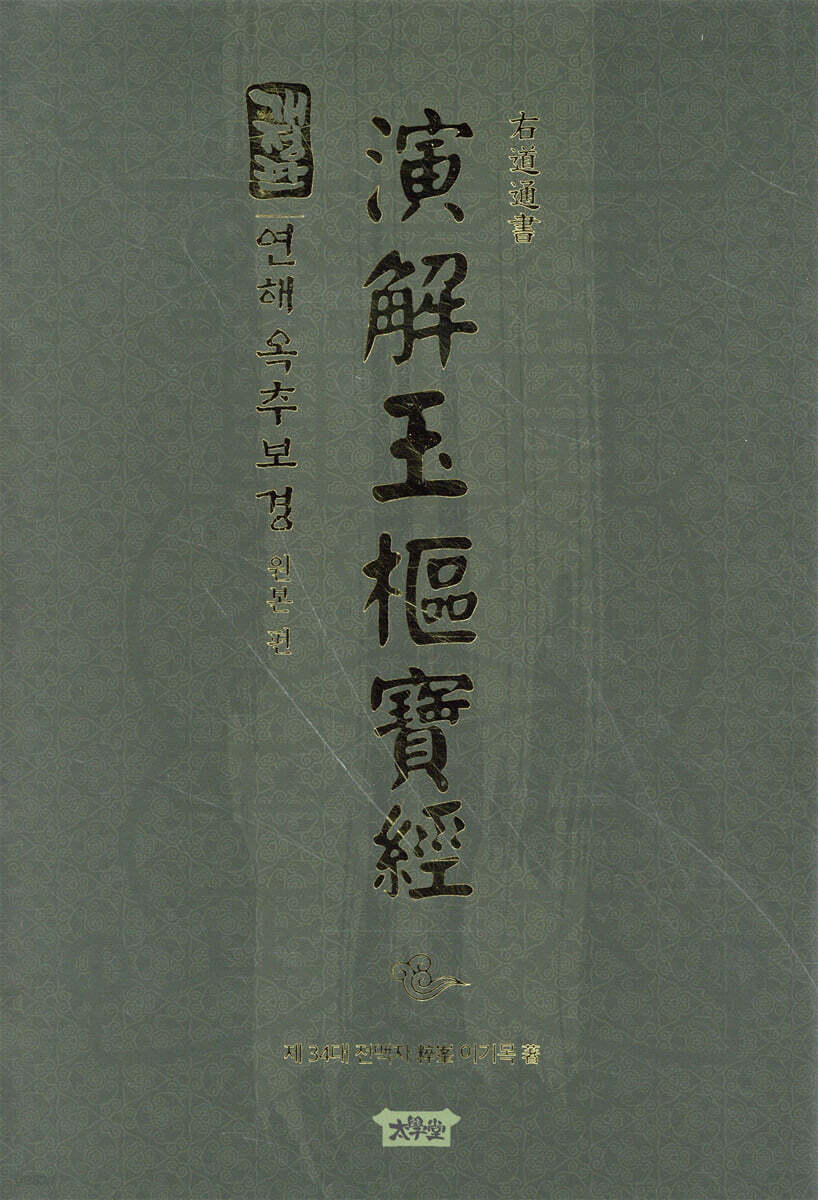 右道通書
演解玉樞寶經
개정판
연해 옥추보경 원본 편
제 34대 전맥자 粹峯 이기목 著
太學堂